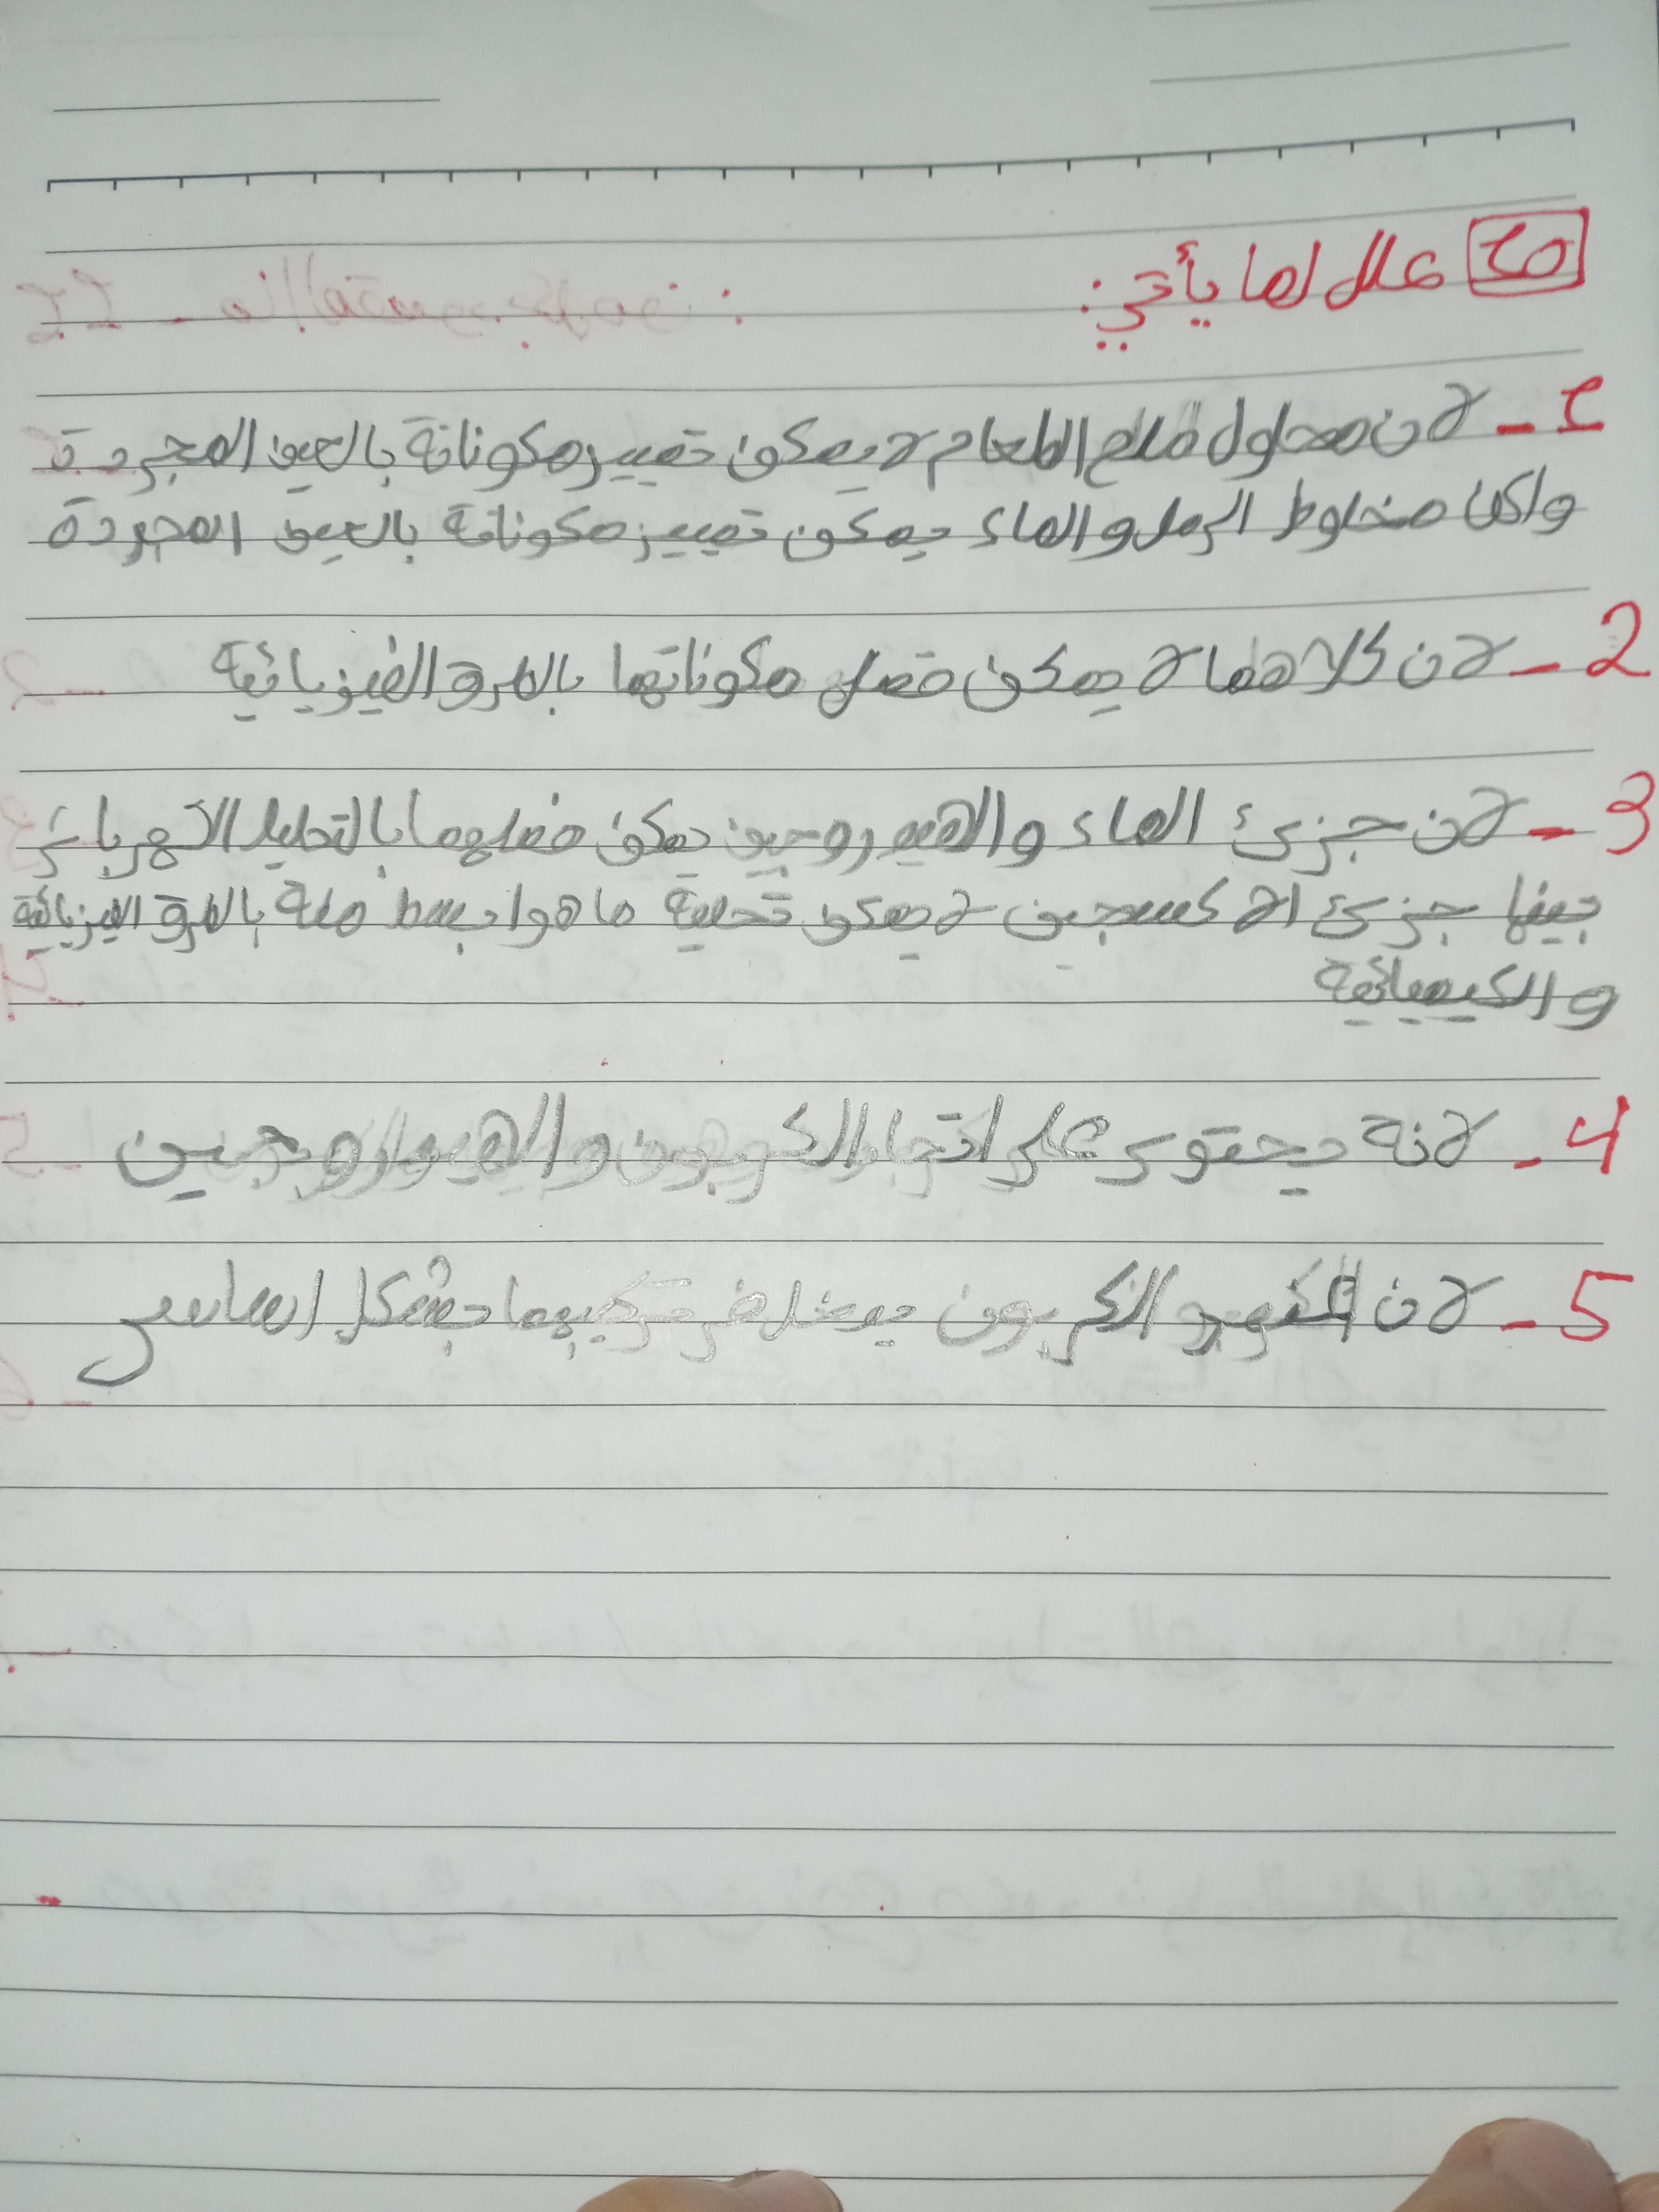 س2 علل لما يأتي:
1- لان محلول ملح الطعام لا يمكن تمييز مكوناتة بالعين المجردة
ولكن مخلوط الرمل والماء يمكن تمييز مكوناتة بالعين المجردة
2- لان كلاهما لا يمكن فصل مكوناتها بالطرق الفيزيائية
3- لان جزئ الماء والهيدروجين يمكن فصلهما بالتحليل الكهربائي
بينما جزئ الاكسجين لا يمكن تحلية ما هوا بسط منة بالطرق الفيزيائية
والكيميائية
4- لانة يحتوي على اتحاد الكربون والهيدروجين
5- لان الكربون يدخل في تركيبهما بشكل اساسي